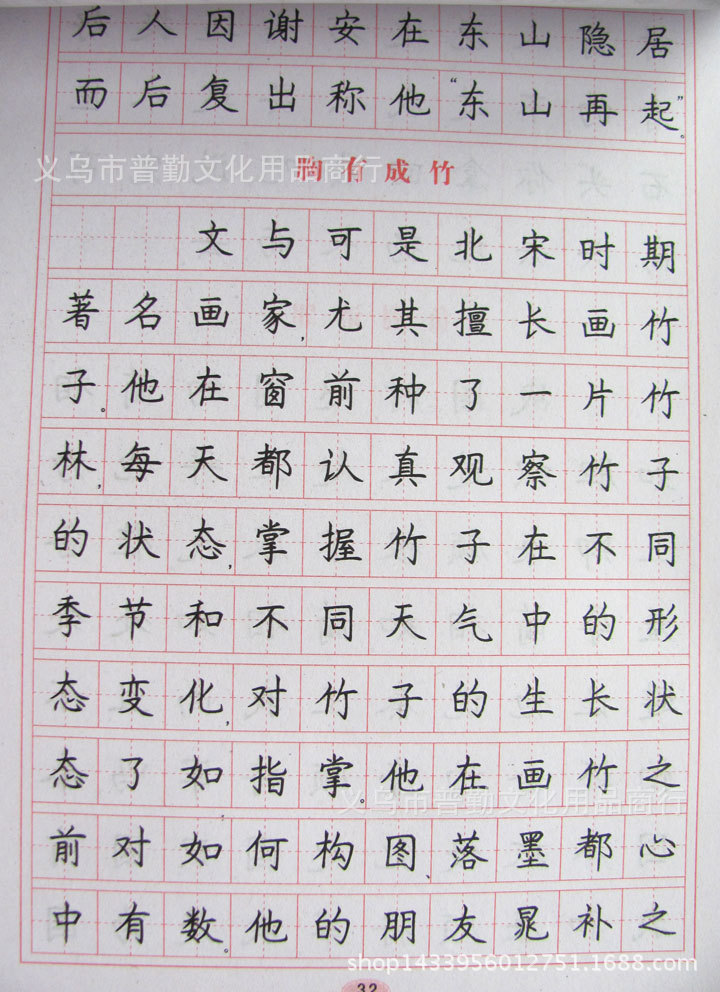 后人因谢安在东山隐居
而后复出称他“东山再起”。
义乌市普勤文化用品商行
胸有成竹
文与可是北宋时期
著名画家,尤其擅长画竹
子。他在窗前种了一片竹
林,每天都认真观察竹子
的状态,掌握竹子在不同
季节和不同天气中的形
态变化,对竹子的生长状
态了如指掌。他在画竹之
义乌市普勤文化用品商行
前对如何构图、落墨都心
中有数。他的朋友晁补之
shop1433956012751.1688.com
32